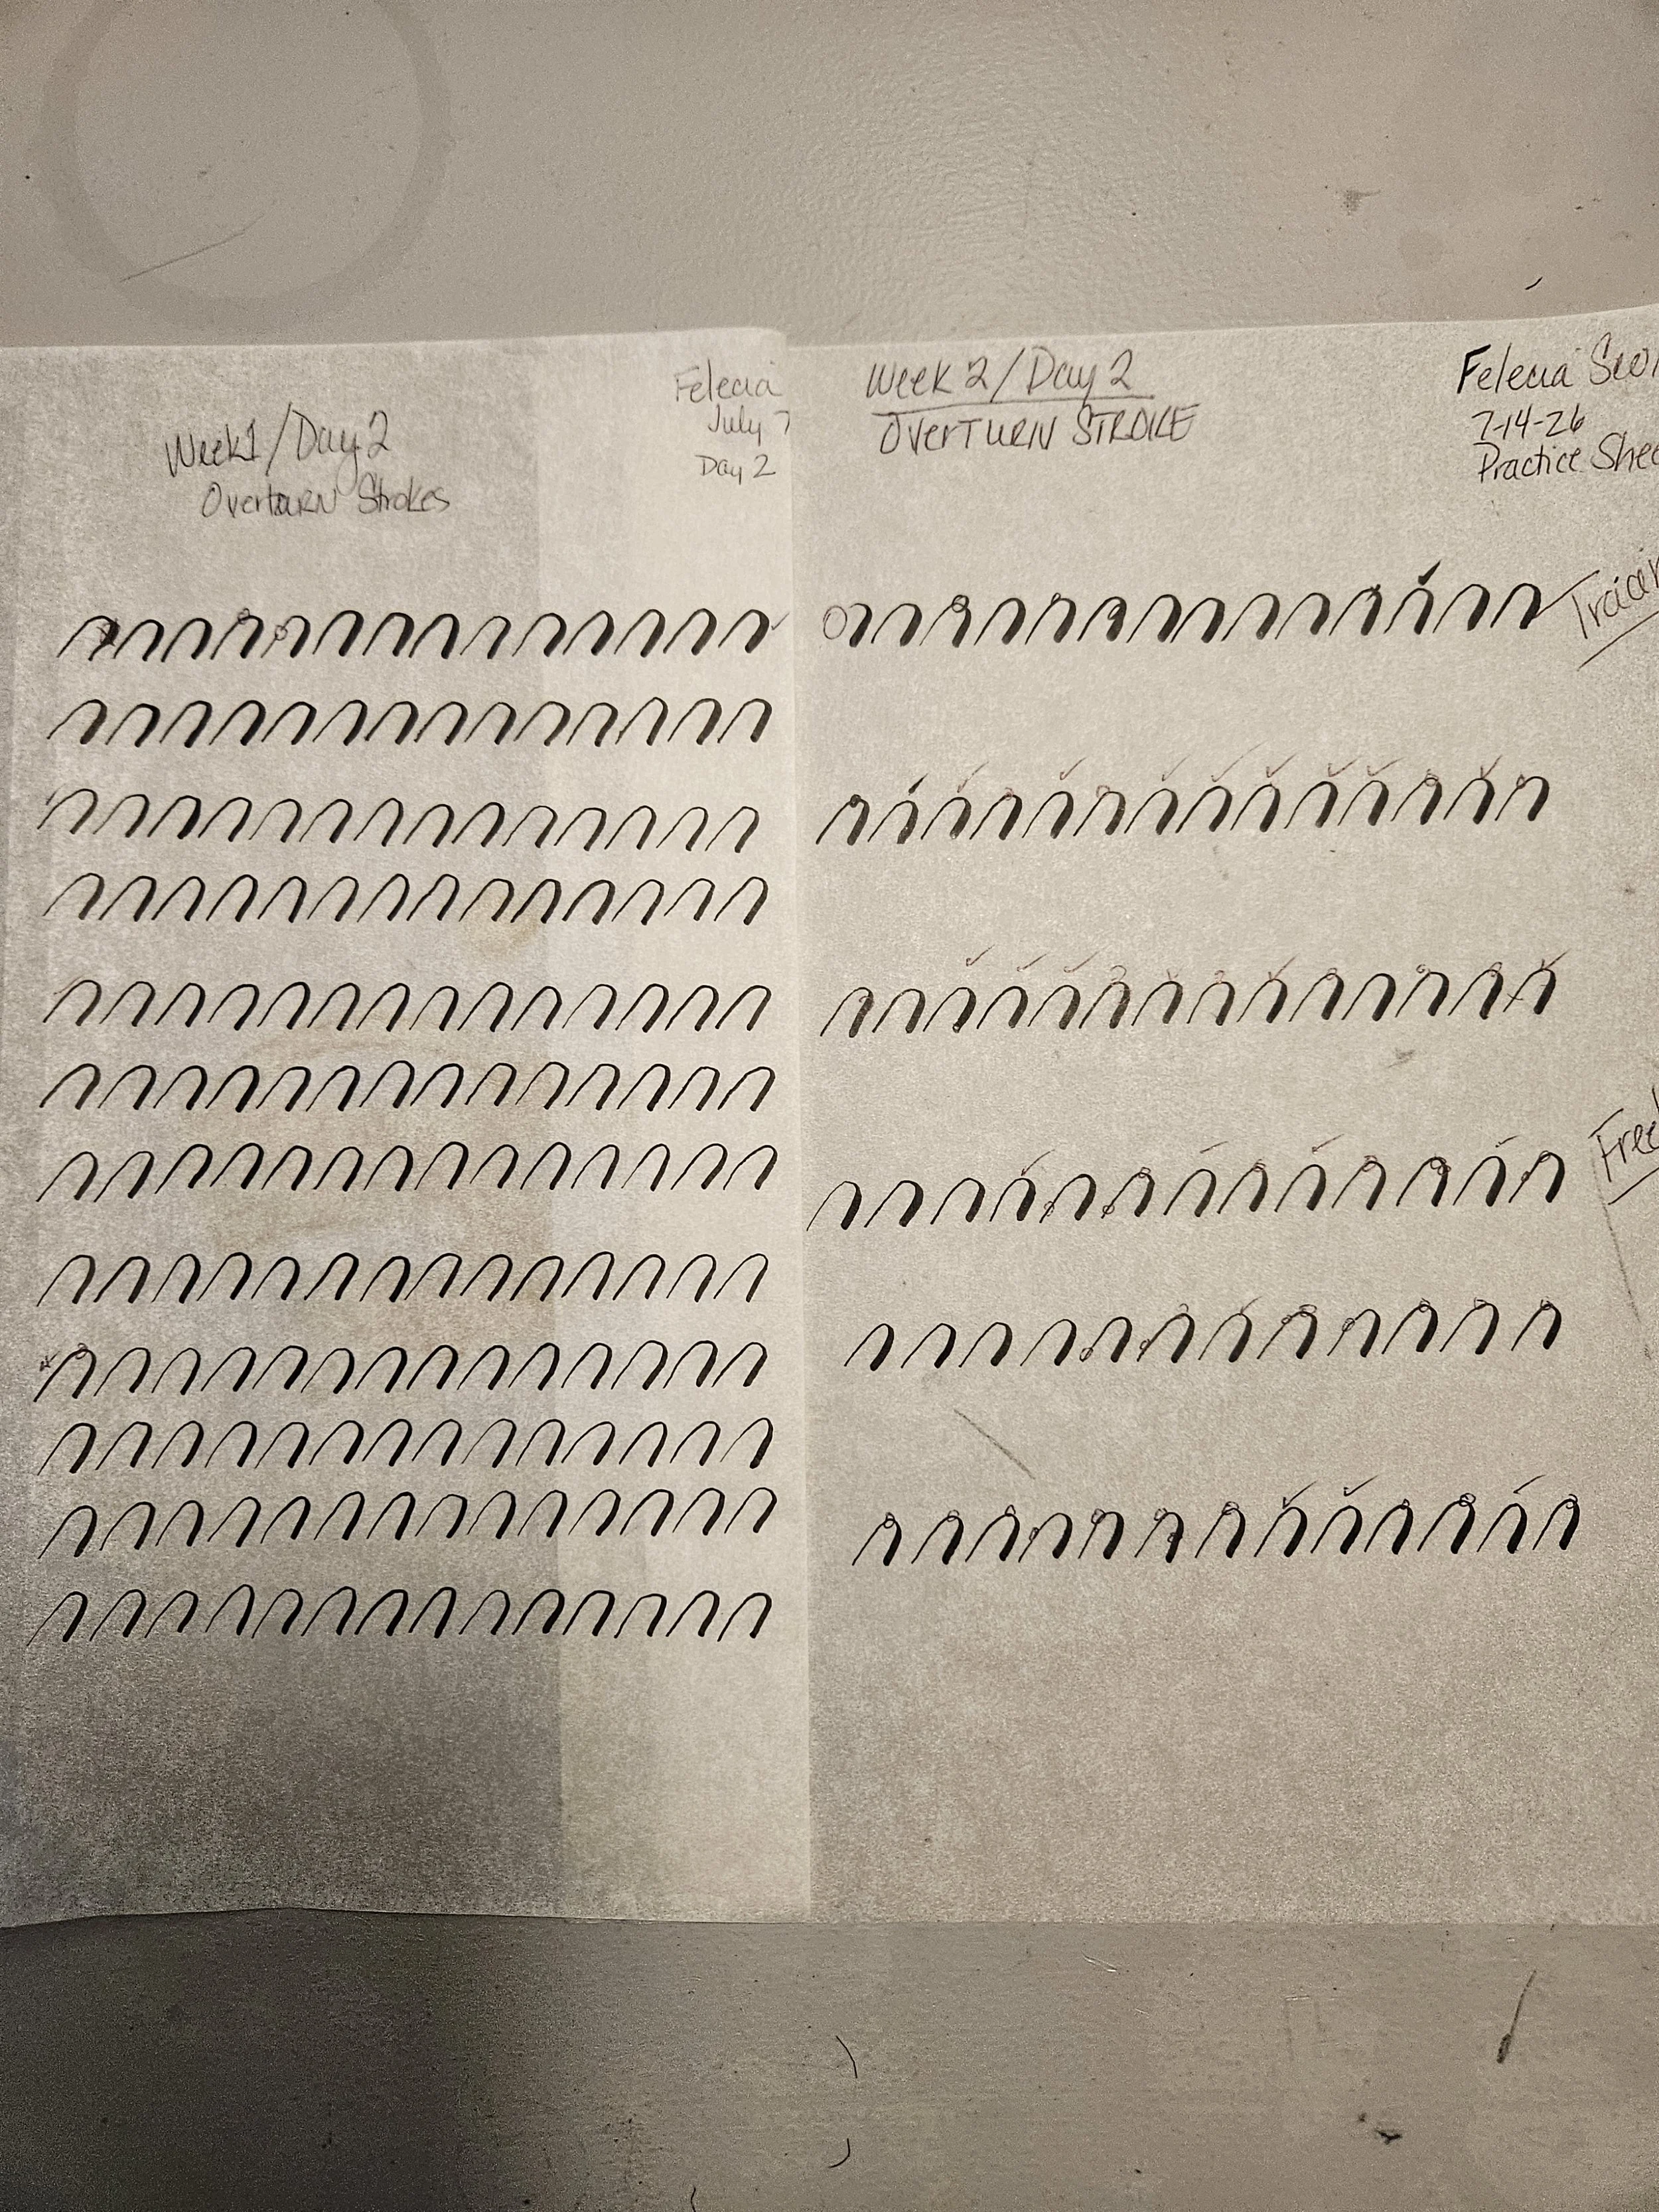 Week1/Day 2
Overturn Strokes
Felecia
July 7
Day 2
Week 2/Day 2
OverTURN STROKE
Felecia
7-14-26
Practice